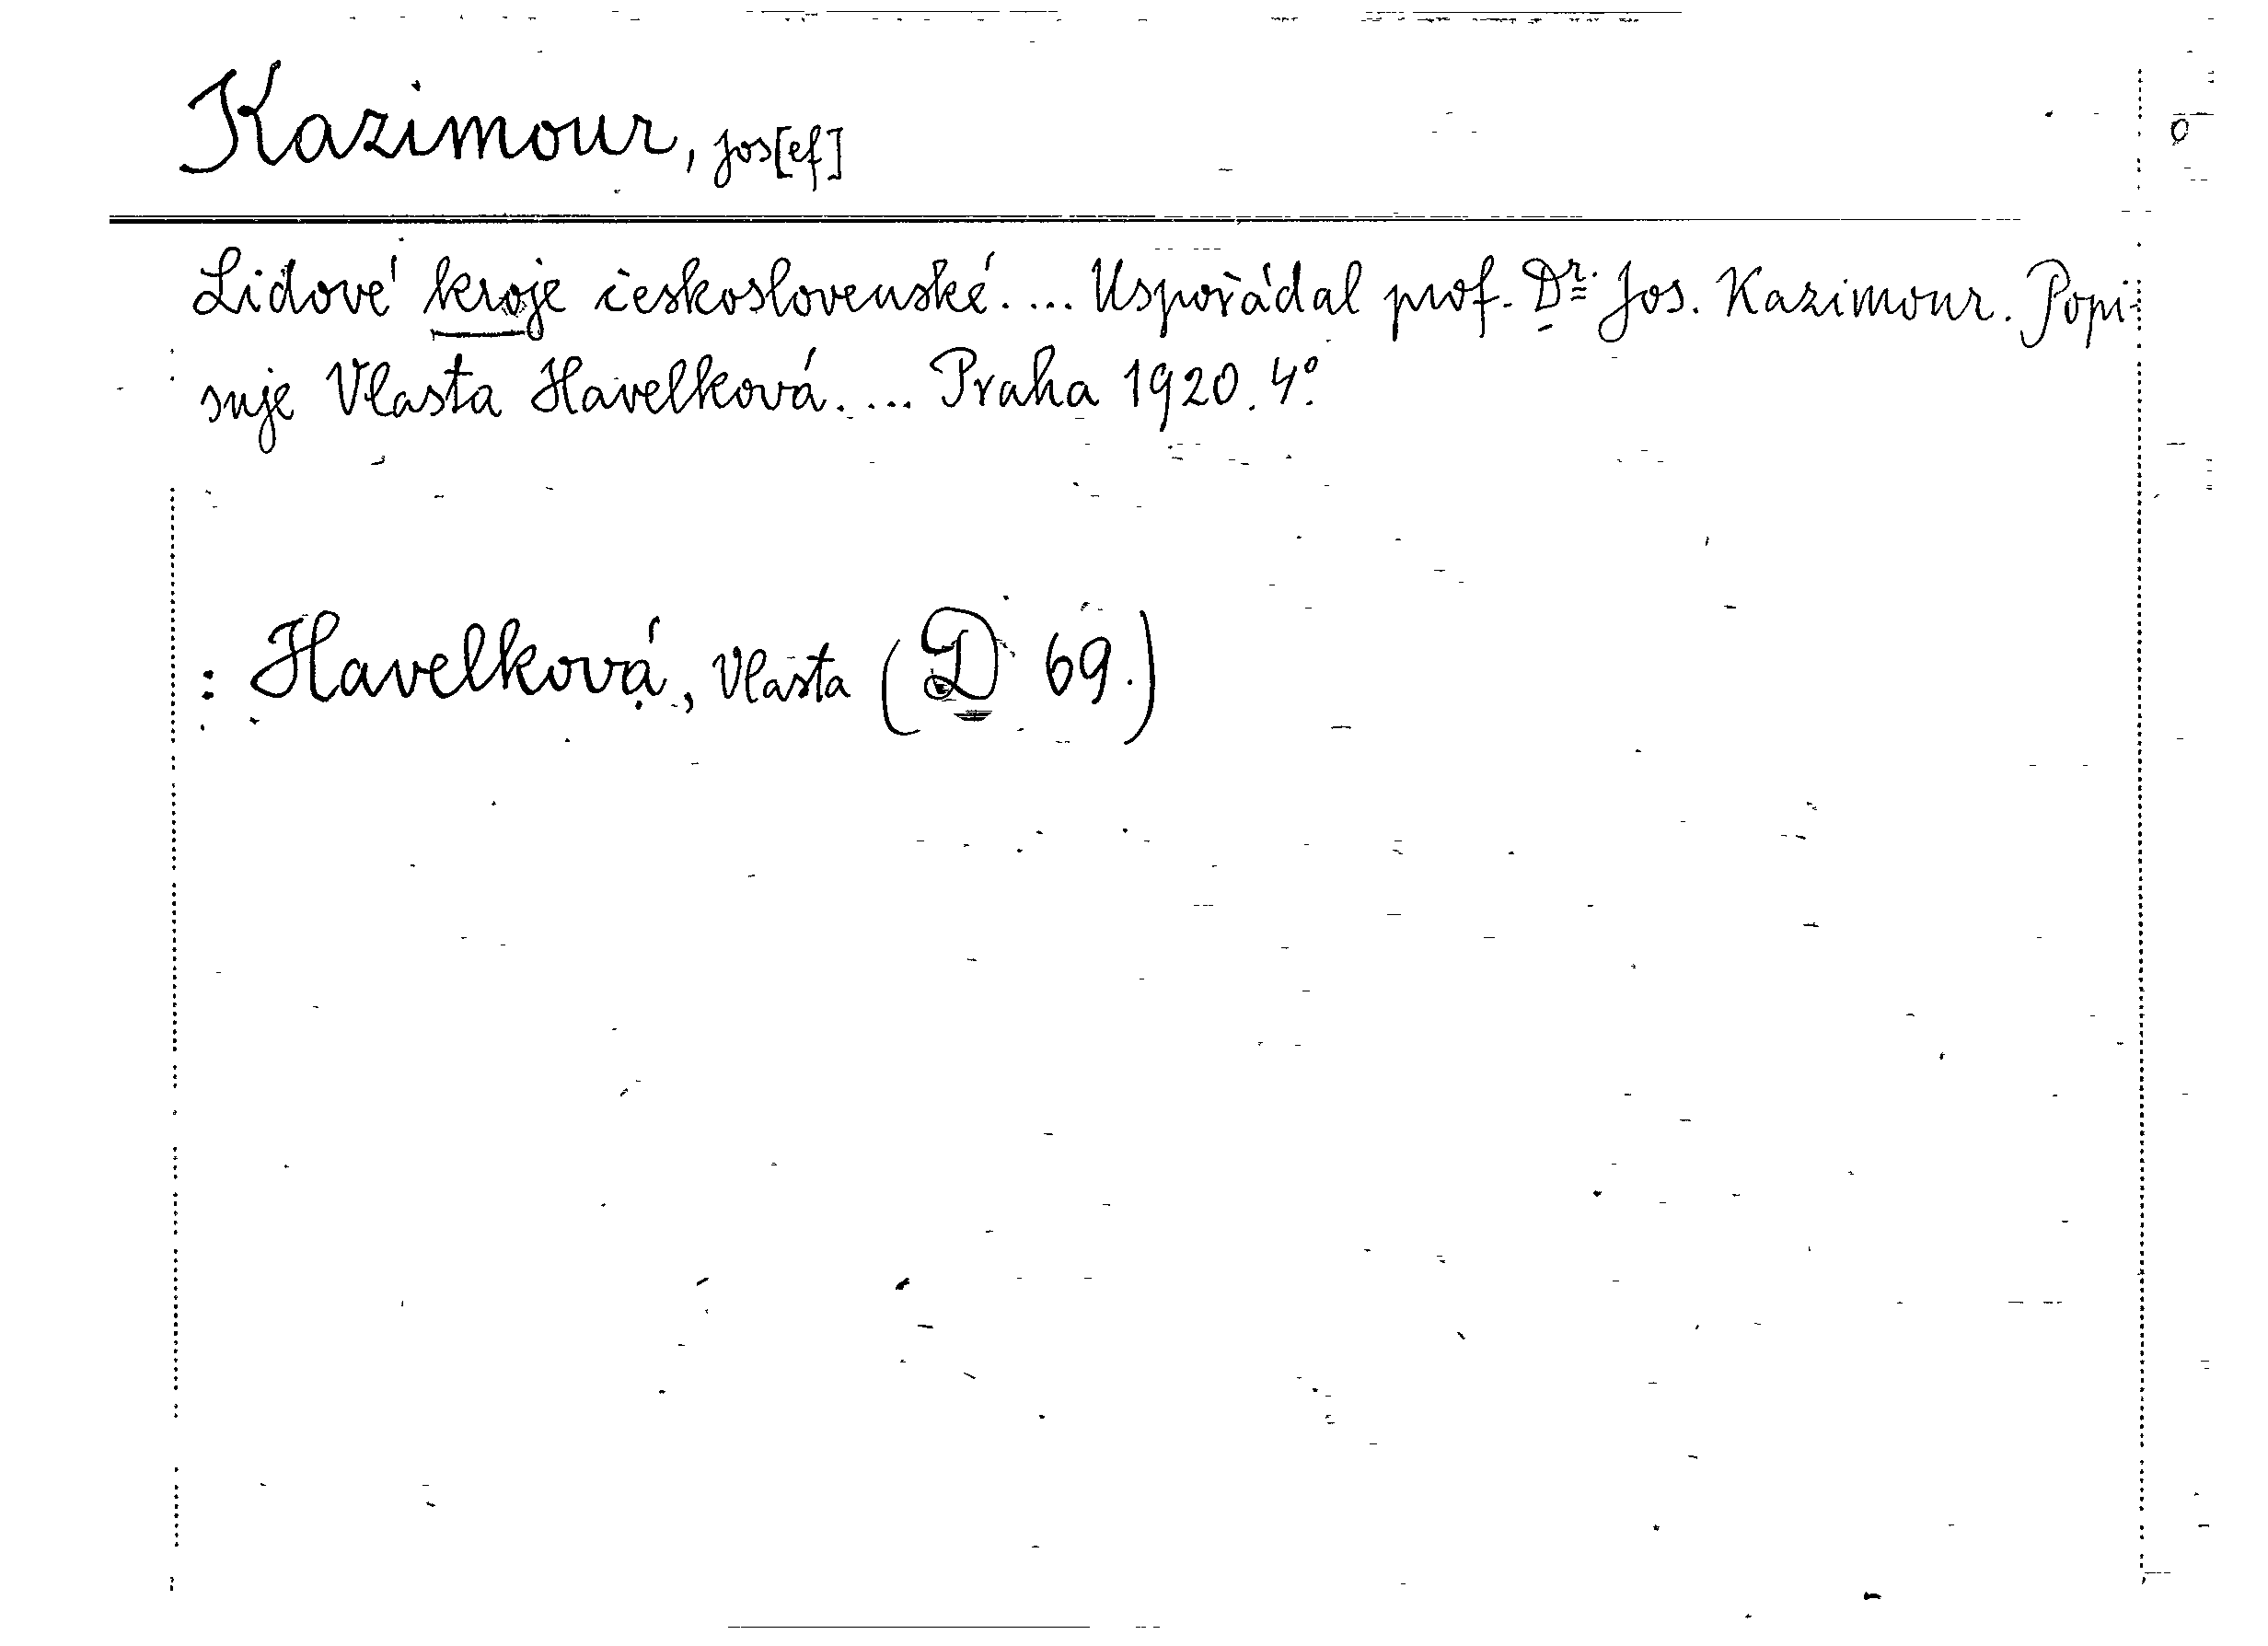 Kazimour, Jos[ef]
Lidové kroje československé. ... Uspořádal prof. Dr. Jos. Kazimour. Popi-
suje Vlasta Havelková. ... Praha 1920. 4°.
: Havelková, Vlasta (D 69.)